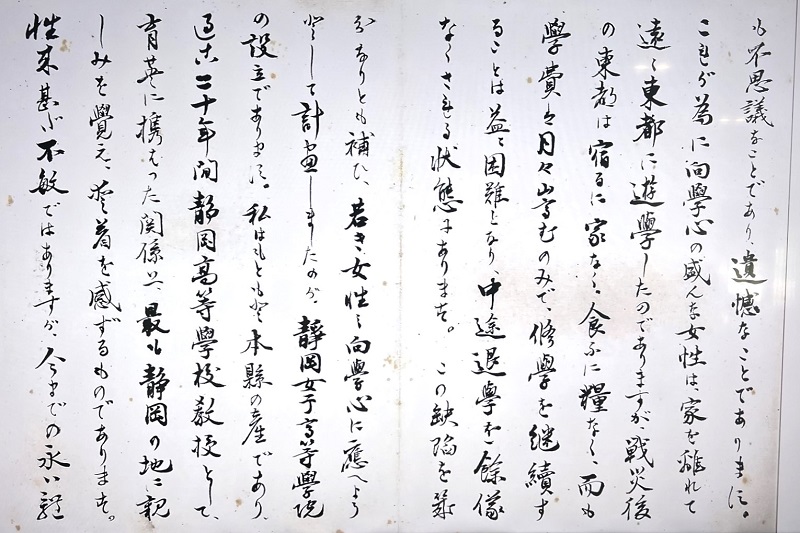 も不思議なことであり、遺憾なことであります。
これが為に向學心の盛んな女性は、家を離れて
遠く東都に遊學したのでありますが、戦災後
の東都は宿るに家なく、食ふに糧なく、而も
學費は月々嵩むのみで、修學を継續す
ることは益々困難となり、中途退學を餘儀
なくされる状態にあります。この缺陥を幾
分なりとも補ひ、若き女性の向學心に應へよう
として計画しましたのが、静岡女子高等學院
の設立であります。私はもともと本縣の産であり、
過去二十年間静岡高等學校教授として、
育英に携はつた関係上、最も静岡の地に親
しみを覺え、愛着を感ずるものであります。
性来甚だ不敏ではありますが、今までの永い經